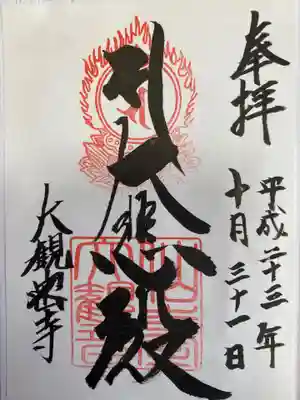 奉拝
平成二十三年
十月三十一日
大悲殿
大観音寺